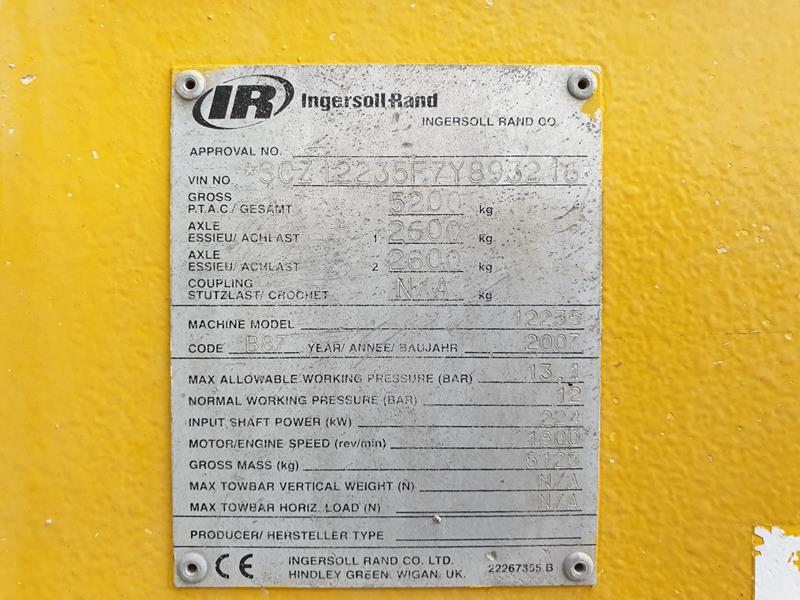 IR Ingersoll-Rand
INGERSOLL RAND CO
APPROVAL NO.
VIN NO *SCZ12235F7Y893216*
GROSS
P.T.A.C./ GESAMT 5200 kg
AXLE
ESSIEU/ ACHLAST 1 2600 kg
AXLE
ESSIEU/ ACHLAST 2 2600 kg
COUPLING
STUTZLAST/ CROCHET N/A kg
MACHINE MODEL 12235
CODE B87 YEAR/ ANNEE/ BAUJAHR 2007
MAX ALLOWABLE WORKING PRESSURE (BAR) 13.1
NORMAL WORKING PRESSURE (BAR) 12
INPUT SHAFT POWER (kW) 224
MOTOR/ENGINE SPEED (rev/min) 1800
GROSS MASS (kg) 5123
MAX TOWBAR VERTICAL WEIGHT (N) N/A
MAX TOWBAR HORIZ. LOAD (N) N/A
PRODUCER/ HERSTELLER TYPE
CE INGERSOLL RAND CO. LTD.
HINDLEY GREEN, WIGAN, UK. 22267355 B